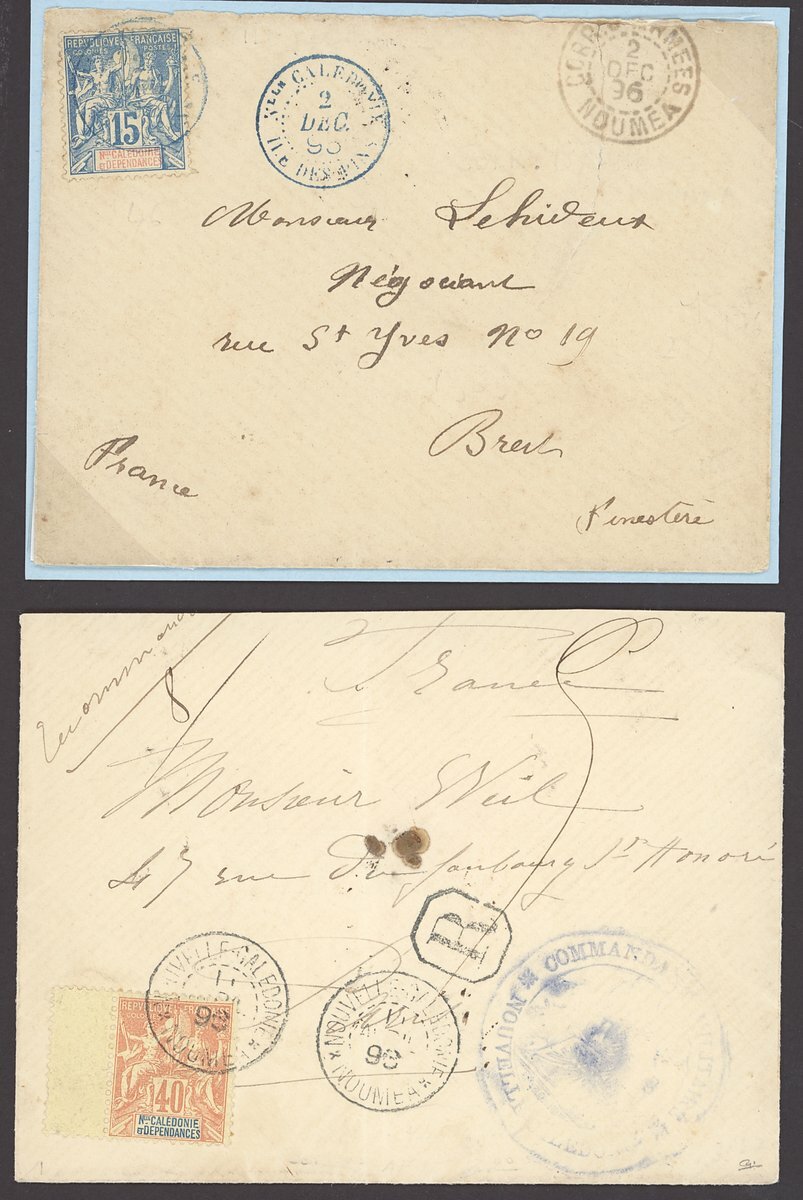 REPUBLIQUE FRANÇAISE
COLONIES POSTES
15
Nlle CALEDONIE
ET DÉPENDANCES
Nlle CALEDNIE
2
DEC.
ILE DES PINS
CORR. ARMEES
2
DEC
96
NOUMEA
Monsieur Lehideux
Négociant
rue St Yves No 19
Brest
France
Finestère
France
8
Monsieur Weil
47 rue du faubourg St Honoré
R
NOUVELLE-CALEDONIE
11
93
NOUMEA
NOUVELLE-CALEDONIE
11
93
NOUMEA
COMMANDA
NOUVELLE
CALEDONIE
REPUBLIQUE
40
Nlle CALÉDONIE
ET DÉPENDANCES